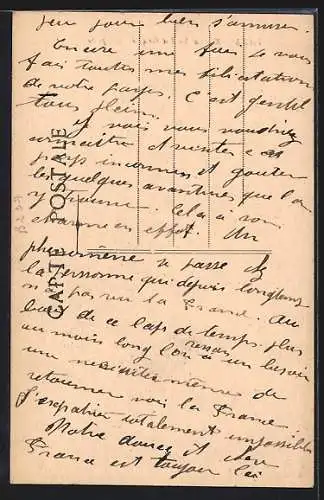 peu pour bien s'amuser.
Encore une fois je vous
fais toutes mes félicitations
de votre pays. C'est gentil
tous plein.
Je vais vous voudriez
connaître et visiter ce
pays inconnus et goûter
les quelques aventures que l'on
y trouve. Cela a son
charme en effet. Un
phénomène se passe chez
la personne qui depuis longtemps
n'a pas vu la France. Au
bout de ce laps de temps plus
ou moins long l'on a un besoin
une nécessité même de
retourner voir la France.
S'expatrier totalement impossible
Notre douce et chère
France est toujours là
CARTE POSTALE